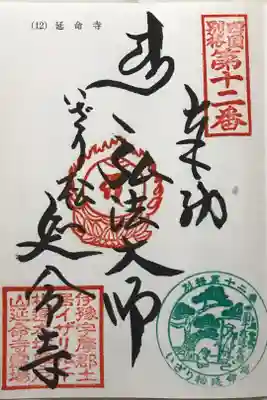 (12) 延命寺
四国
別格
第十二番
奉納
弘法大師
いざり松
延命寺
伊豫宇摩郡土
居イザリ
山延命寺
別格第十二番
いざり松延命寺